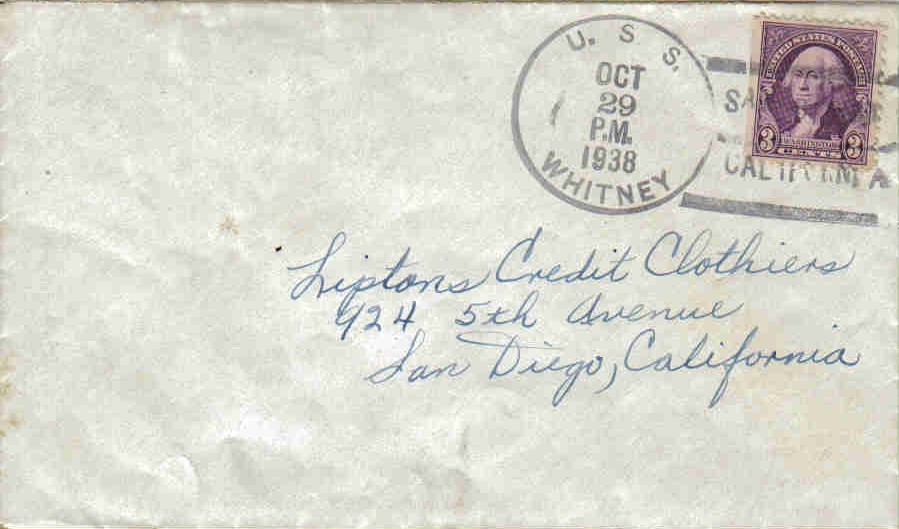 U. S. S.
OCT
29
P.M.
1938
WHITNEY
CALIFORNIA
UNITED STATES POSTAGE
WASHINGTON
3 CENTS 3
Liptons Credit Clothiers
924 5th Avenue
San Diego, California